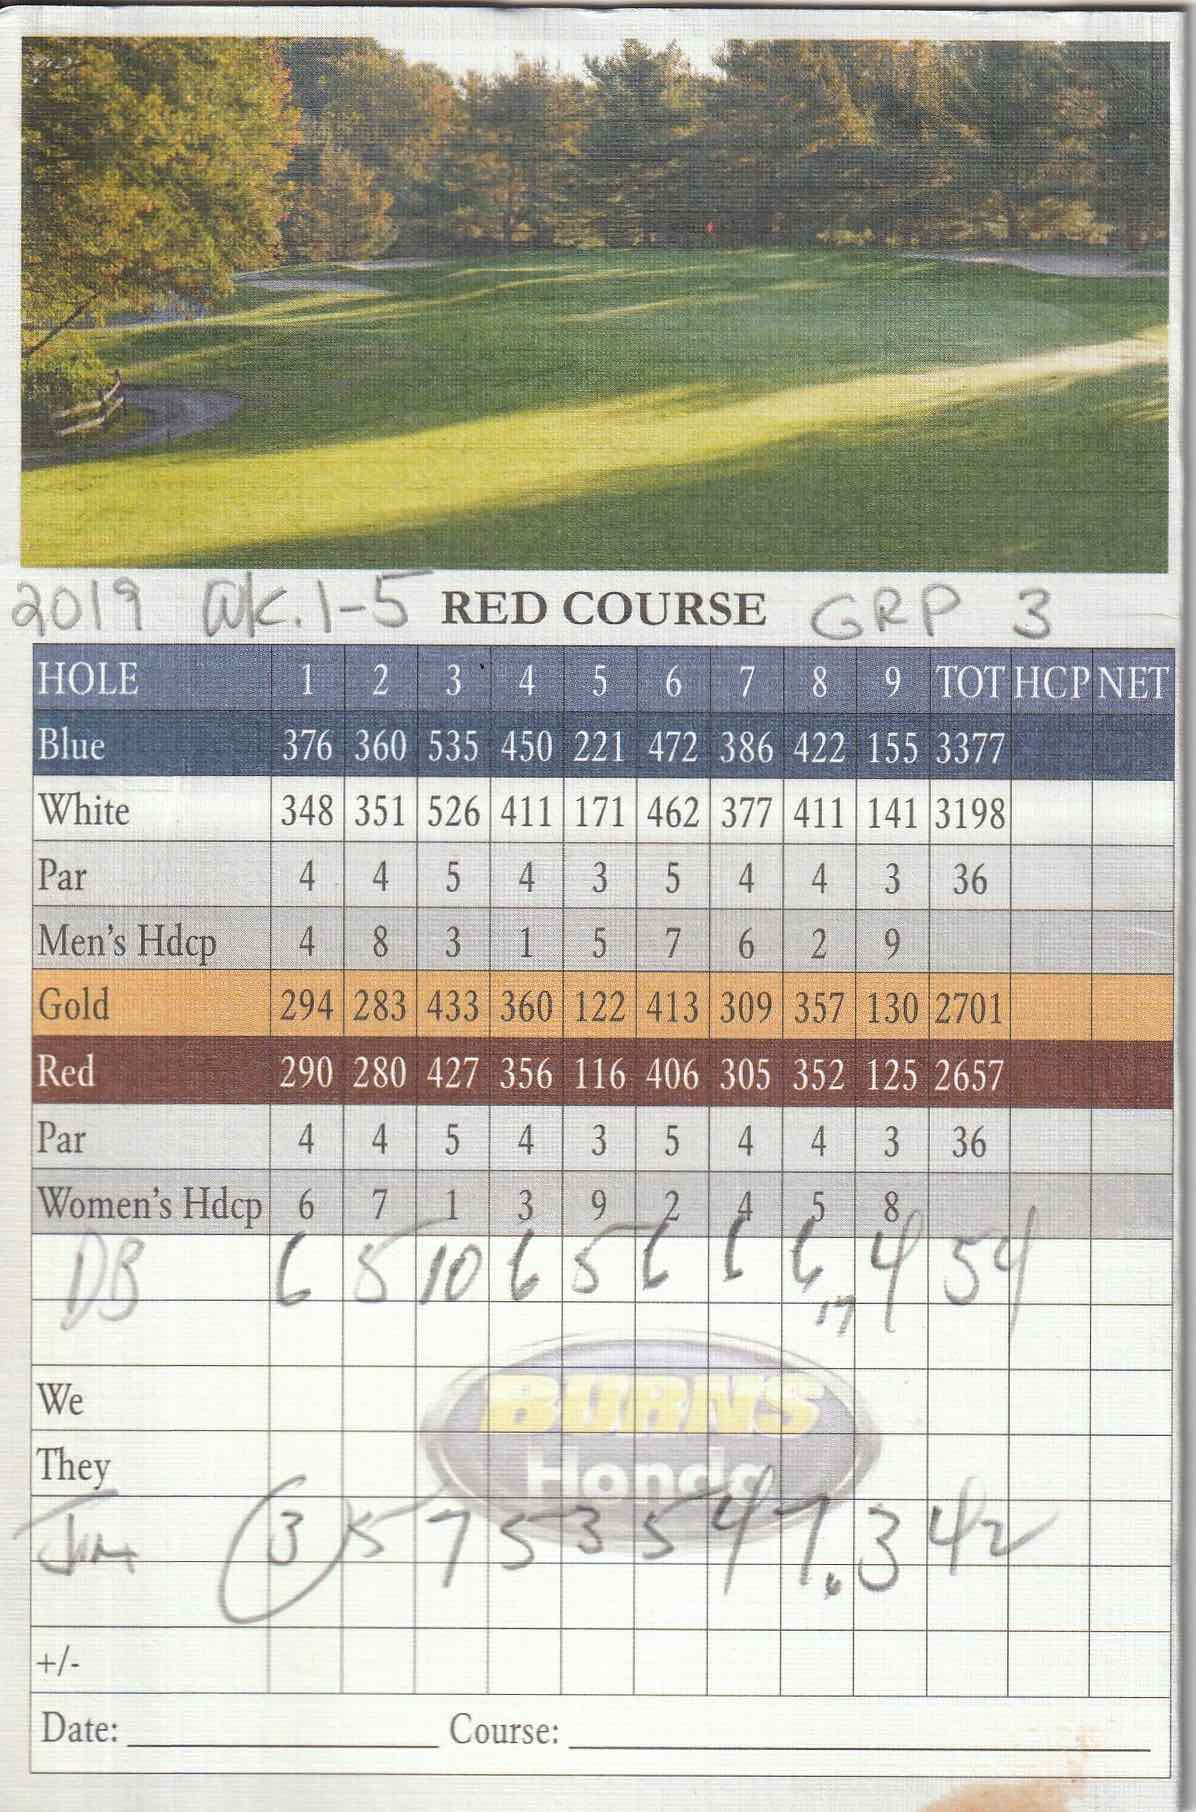 2019 WK. 1-5 RED COURSE GRP 3
HOLE 1 2 3 4 5 6 7 8 9 TOT HCP NET
Blue 376 360 535 450 221 472 386 422 155 3377
White 348 351 526 411 171 462 377 411 141 3198
Par 4 4 5 4 3 5 4 4 3 36
Men's Hdcp 4 8 3 1 5 7 6 2 9
Gold 294 283 433 360 122 413 309 357 130 2701
Red 290 280 427 356 116 406 305 352 125 2657
Par 4 4 5 4 3 5 4 4 3 36
Women's Hdcp 6 7 1 3 9 2 4 5 8
DB 6 5 10 6 5 6 6 6 4 54
17
BURNS
We
They
Honda
Jim 3 5 7 5 3 5 4 7 3 42
6
+/-
Date: Course: